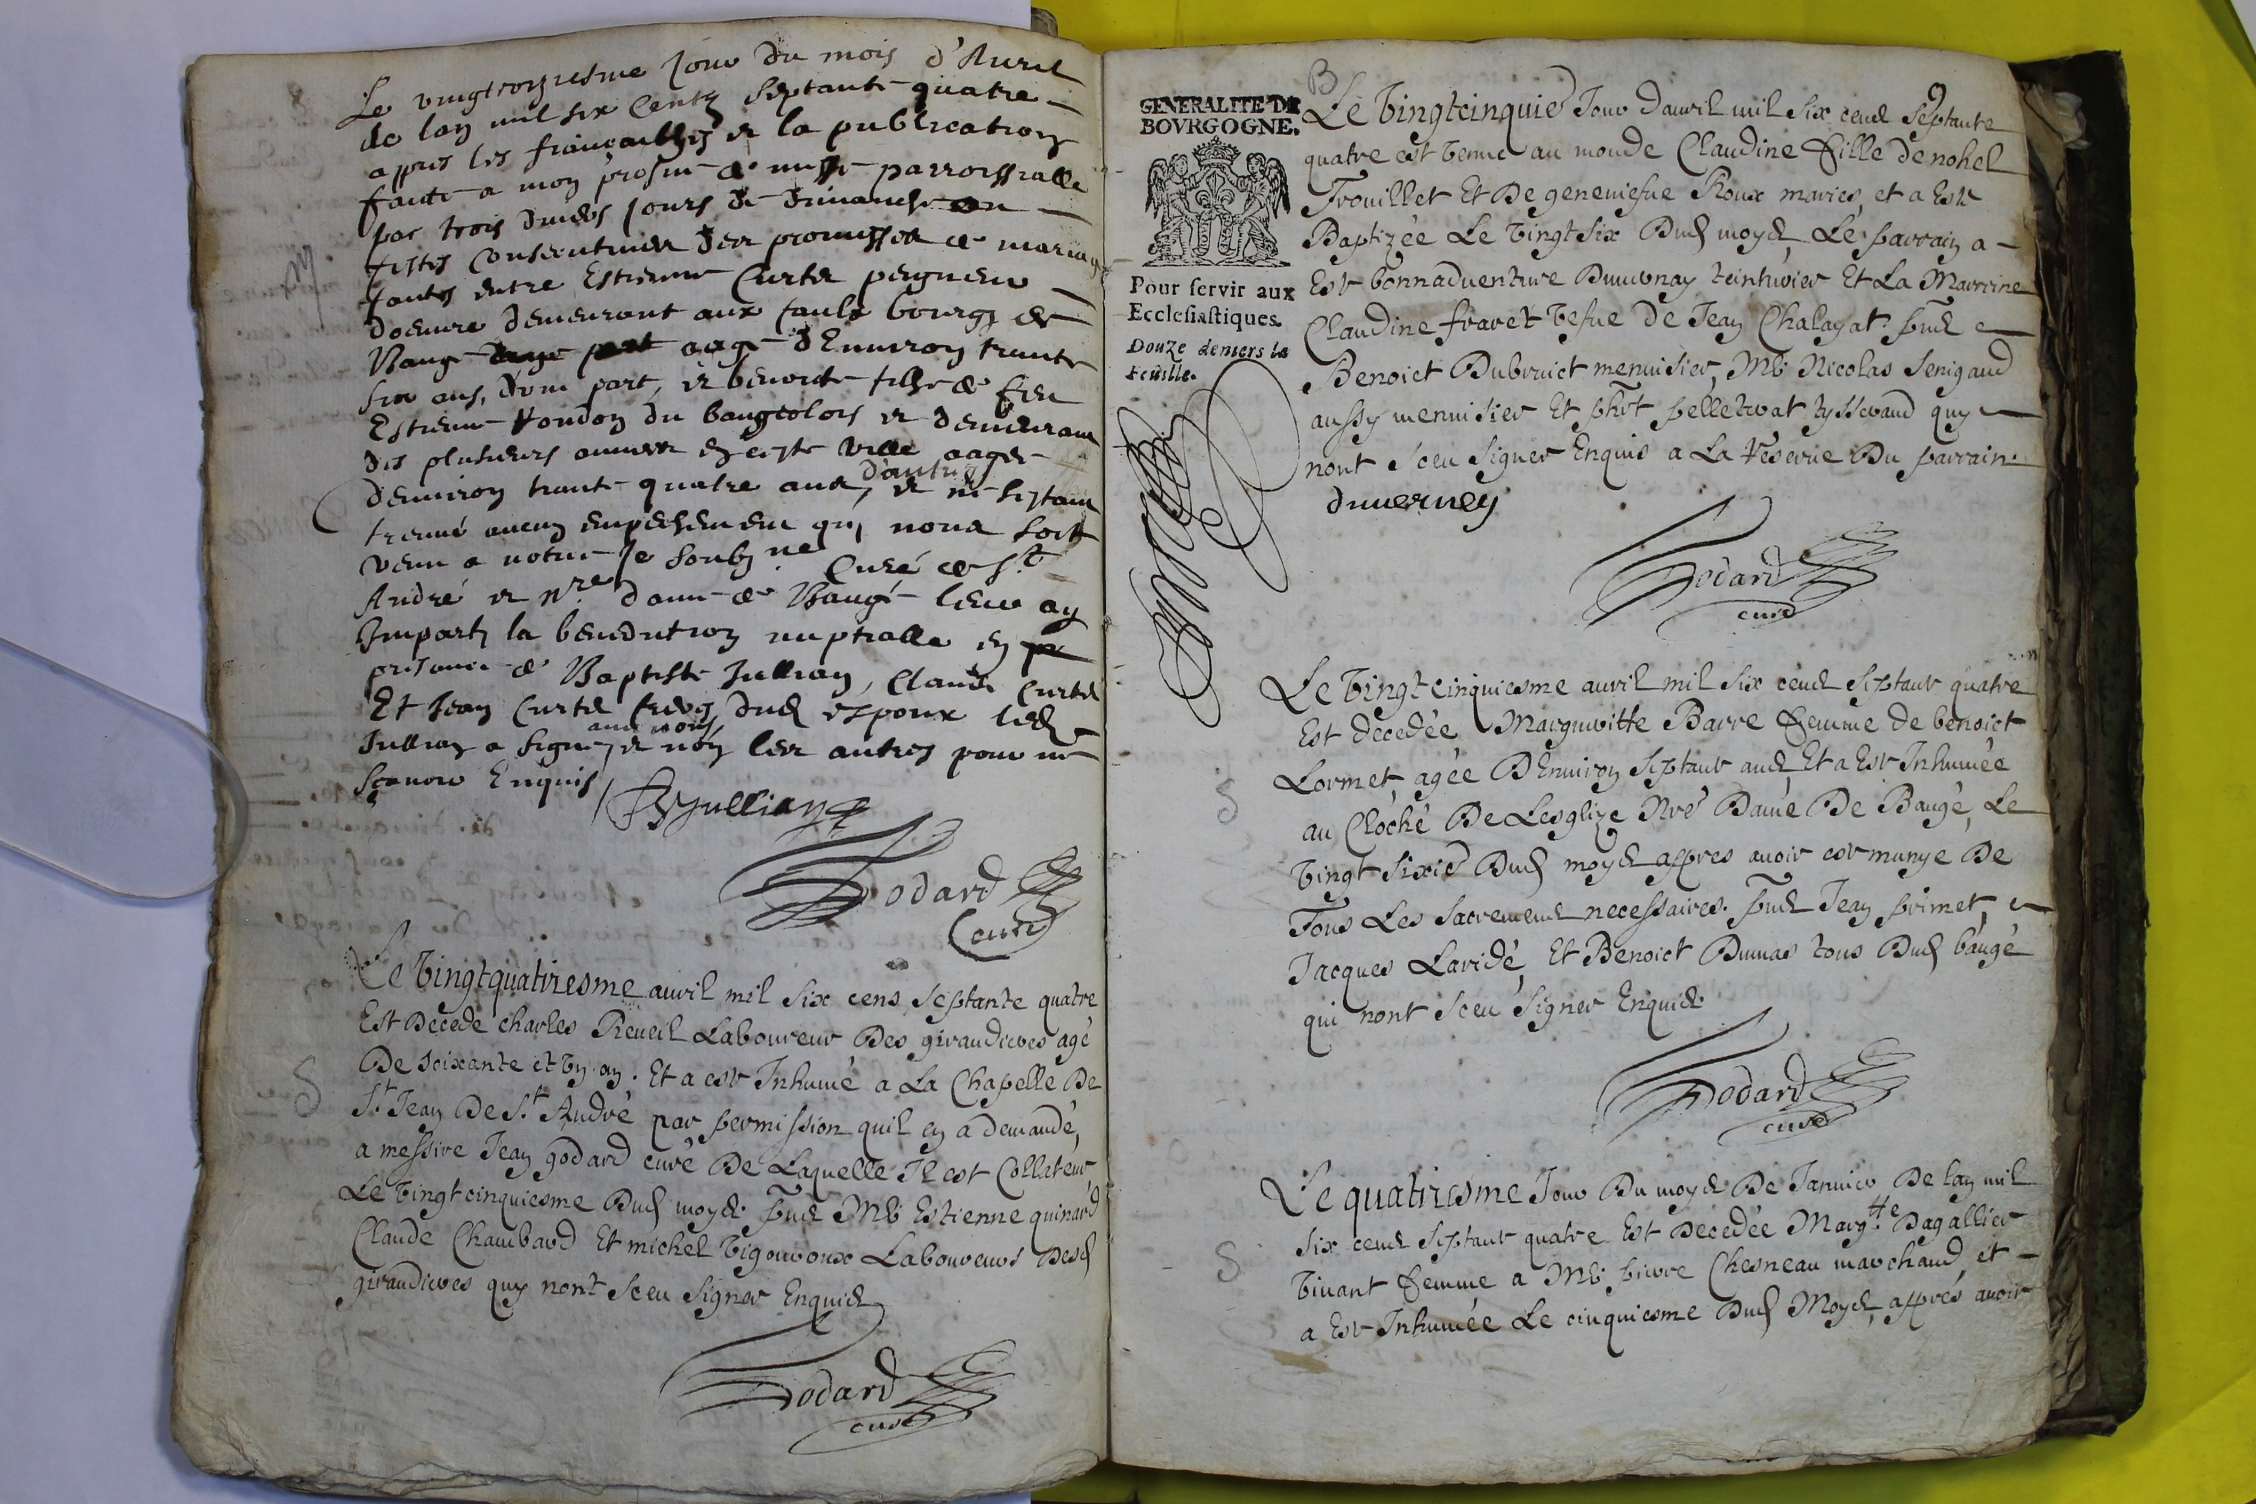 Le vingtroiziesme Jour du mois d'Avril
de lan mil six Centz septante quatre
appres les fiançailles et la publication
faicte a mon prosne de messe parroissialle
par trois divers jours de dimanche ou
festes consecutives des promesses de mariage
faictes entre Estienne Curtet peigneur
doeuvre demeurant aux faulx bourgs de
Baugé aage d'Environ trante
six ans, d'une part, et benoite fille de feu
Estienne du baugeolois et demeurant
des plusieurs annees en ceste ville aagee
denviron trante quatre ans, d'autre et ne sestant
treuvé aucun empeschement qui nous soit
venu a notice Je soubz.né Curé de St
André et nre dame de Baugé leur ay
Imparty la benediction nuptialle en
presence de Baptiste Jullian, Claude Curtet
Et Jean Curtet freres dud espoux led
Jullian a signé avec nous et non les autres pour ne
sçavoir Enquis
Jullian
Godard
curé
Le vingtquatriesme avril mil six cens septante quatre
Est Decede charles Reveil Laboureur Des giraudieres agé
De soixante et un an. Et a est Inhumé a La Chapelle De
St Jean De St André par permission quil en a demandé,
a messire Jean godard curé De Laquelle Il est Collateur
Le vingtcinquiesme Dud moys. pnts Mre Estienne quinard
Claude Chambard Et michel vigouroux Laboureurs Desd
giraudieres quy nont sceu signer Enquis
Godard
curé
B
9
GENERALITE DE
BOVRGOGNE.
Pour servir aux
Ecclesiastiques.
Douze deniers la
Feuille.
Le vingtcinquie Jour davril mil six cens septante
quatre est venue au monde Claudine fille de nohel
Trouillet Et De geneviefve Roux maries, et a Esté
Baptizée Le vingt six Dud moys, Le parrain a
Est bonnadventure Duvernay teinturier Et La Marrine
Claudine fravet vefve de Jean Chalayat. pnts
Benoict Dubruict menuisier, Mre Nicolas Senigaud
aussy menuisier Et phrt pelletrat tysserand quy
nont sceu signer Enquis a La reserve Du parrain.
duverney
Godard
curé
Le vingtcinquiesme avril mil six cens septant quatre
Est decedée Margueritte Barre femme de benoict
Lormet, agée D'Environ septant ans, Et a Est Inhumée
au Cloché De Lesglize Nre Dame De Baugé, Le
vingt sixie Dud moys appres avoir est munye De
Tous Les sacremens necessaires. pnts Jean primet,
Jacques Laridé, Et Benoict Dumas tous Dud baugé
qui nont sceu signer Enquis
Godard
curé
Le quatriesme Jour Du moys De Janvier De lan mil
six cens septant quatre Est Decedée Marg.tte Dagallier
vivant femme a Mre pierre Chesneau marchand, et
a Est Inhumée Le cinquiesme Dud Moys, apprés avoir